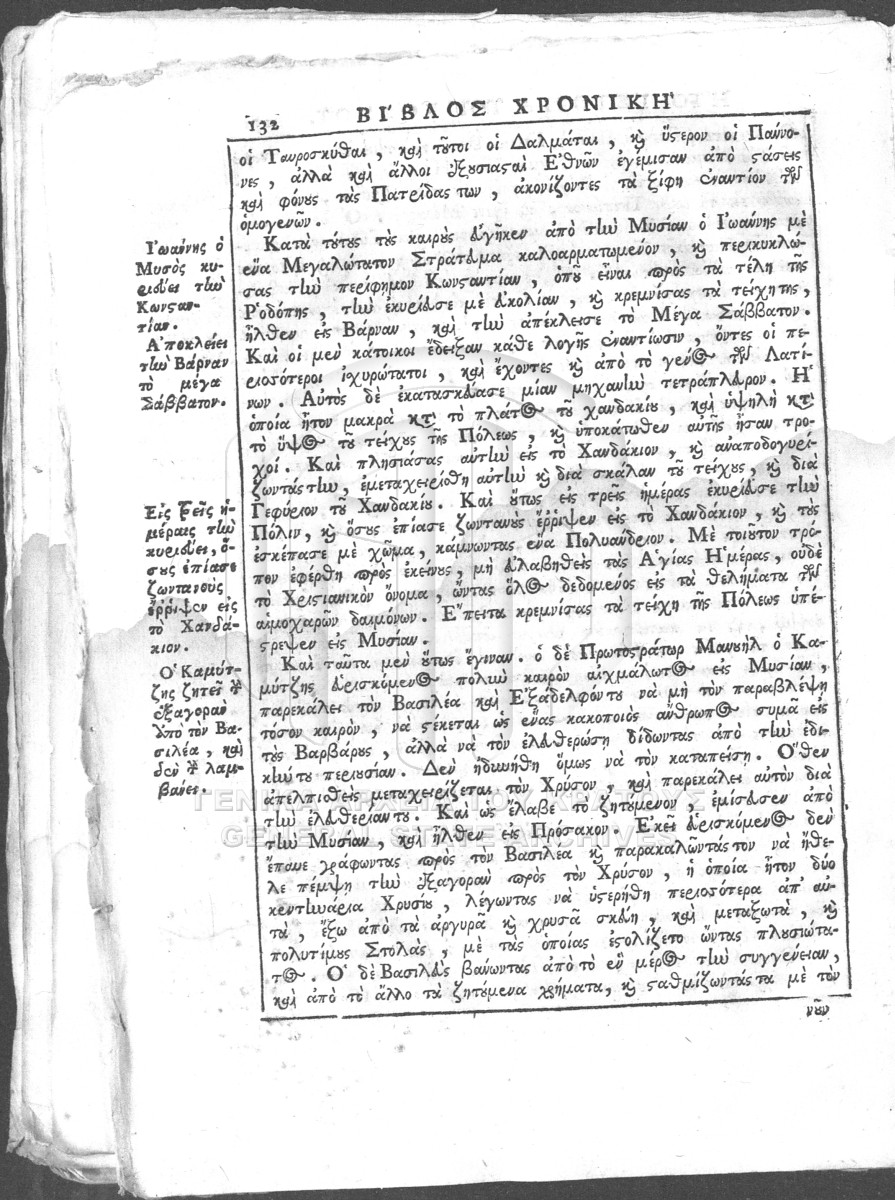 132 ΒΙ΄ΒΛΟΣ ΧΡΟΝΙΚΗ΄
οἱ Ταυροσκύθαι, καὶ τοῦτοι οἱ Δαλμάται, καὶ ὕστερον οἱ Παύνο-
νες, ἀλλὰ καὶ ἄλλοι ἐξουσιασταὶ Ἐθνῶν ἐγέμισαν ἀπὸ στάσεις
καὶ φόνους τὰς Πατρίδας των, ἀκονίζοντες τὰ ξίφη ἐναντίον τῶν
ὁμογενῶν.
Κατὰ τούτους τοὺς καιροὺς εὐγῆκεν ἀπὸ τὴν Μυσίαν ὁ Ἰωάννης μὲ
ἕνα Μεγαλώτατον Στράτευμα καλοαρματωμένον, καὶ περικυκλώ-
σας τὴν περίφημον Κωνσταντίαν, ὁποῦ εἶναι πρὸς τὰ τέλη τῆς
Ῥοδόπης, τὴν ἐκυρίευσε μὲ εὐκολίαν, καὶ κρεμνίσας τὰ τείχητης,
ἦλθεν εἰς Βάρναν, καὶ τὴν ἀπέκλεισε τὸ Μέγα Σάββατον.
Καὶ οἱ μὲν κάτοικοι ἔδειξαν κάθε λογῆς ἐναντίωσιν, ὄντες οἱ πε-
ρισότεροι ἰχυρώτατοι, καὶ ἔχοντες καὶ ἀπὸ τὸ γένος τῶν Λατί-
νων. Αὐτὸς δὲ ἐκατασκεύασε μίαν μηχανὴν τετράπλευρον. Ἡ
ὁποία ἦτον μακρὰ κατὰ τὸ πλάτος τοῦ χανδακίου, καὶ ὑψηλὴ κατὰ
τὸ ὕψος τοῦ τείχους τῆς Πόλεως, καὶ ὑποκάτωθεν αὐτῆς ἦσαν τρο-
χοί. Καὶ πλησιάσας αὐτὴν εἰς τὸ Χανδάκιον, καὶ ἀναποδογυρί-
ζωντάςτην, ἐμεταχειρίσθη αὐτὴν καὶ διὰ σκάλαν τοῦ τείχους, καὶ διὰ
Γεφύριον τοῦ Χανδακίου. Καὶ οὕτως εἰς τρεῖς ἡμέρας ἐκυρίευσε τὴν
Πόλιν, καὶ ὅσους ἐπίασε ζωντανοὺς ἔῤῥιψεν εἰς τὸ Χανδάκιον, καὶ τοὺς
ἐσκέπασε μὲ χῶμα, κάμνωντας ἕνα Πολυάνδριον. Μὲ τοιοῦτον τρό-
πον ἐφέρθη πρὸς ἐκείνους, μὴ εὐλαβηθεὶς τὰς Ἁγίας Ἡμέρας, οὐδὲ
τὸ Χριστιανικὸν ὄνομα, ὤντας ὅλος δεδομένος εἰς τὰ θελήματα τῶν
αἱμοχαρῶν δαιμόνων. Ἔπειτα κρεμνίσας τὰ τείχη τῆς Πόλεως ὑπέ-
στρεψεν εἰς Μυσίαν.
Καὶ ταῦτα μὲν οὕτως ἔγιναν. ὁ δὲ Πρωτοστράτωρ Μανουὴλ ὁ Κα-
μύτζης εὑρισκόμενος πολὺν καιρὸν αἰχμάλωτος εἰς Μυσίαν,
παρεκάλει τὸν Βασιλέα καὶ Ἐξάδελφόντου νὰ μὴ τὸν παραβλέψῃ
τόσον καιρὸν, νὰ στέκεται ὡς ἕνας κακοποιὸς ἄνθρωπος συμὰ εἰς
τοὺς Βαρβάρους, ἀλλὰ νὰ τὸν ἐλευθερώσῃ δίδωντας ἀπὸ τὴν ἐδι-
κήντου περιουσίαν. Δὲν ἠδυνήθη ὅμως νὰ τὸν καταπείσῃ. Ὅθεν
ἀπελπισθεὶς μεταχειρίζεται τὸν Χρύσον, καὶ παρεκάλει αὐτὸν διὰ
τὴν ἐλευθερίαντου. Καὶ ὡς ἔλαβε τὸ ζητούμενον, ἐμίσευσεν ἀπὸ
τὴν Μυσίαν, καὶ ἦλθεν εἰς Πρόσακον. Ἐκεῖ εὑρισκόμενος δὲν
ἔπαυε γράφωντας πρὸς τὸν Βασιλέα καὶ παρακαλῶντας τον νὰ ἤθε-
λε πέμψῃ τὴν ἐξαγορὰν πρὸς τὸν Χρύσον, ἡ ὁποία ἦτον δύο
κεντηνάρια Χρυσίου, λέγωντας νὰ ὑστερήθη περισότερα ἀπ᾿ αὐ-
τὰ, ἔξω ἀπὸ τὰ ἀργυρᾶ καὶ χρυσᾶ σκεύη, καὶ μεταξωτὰ, καὶ
πολυτίμους Στολὰς, μὲ τὰς ὁποίας ἐστολίζετο ὤντας πλουσιώτα-
τος. Ὁ δὲ Βασιλεὺς βάνωντας ἀπὸ τὸ ἓν μέρος τὴν συγγένειαν,
καὶ ἀπὸ τὸ ἄλλο τὰ ζητούμενα χρήματα, καὶ σταθμίζωντάς τα μὲ τὸν
νοῦν
Ἰωάννης ὁ
Μυσὸς κυ-
ριεύει τὴν
Κωνσταν-
τίαν.
Ἀποκλείει
τὴν Βάρναν
τὸ μέγα
Σάββατον.
Εἰς τρεῖς ἡ-
μέρας τὴν
κυριεύει, ὅ-
σους ἐπίασε
ζωντανοὺς
ἔῤῥιψεν εἰς
τὸ Χανδά-
κιον.
Ὁ Καμύτ-
ζης ζητεῖ τὴν
ἐξαγορὰν
ὑπὸ τὸν Βα-
σιλέα, καὶ
δὲν τὴν λαμ-
βάνει.
ΓΕΝΙΚΑ ΑΡΧΕΙΑ ΤΟΥ ΚΡΑΤΟΥΣ
GENERAL STATE ARCHIVES